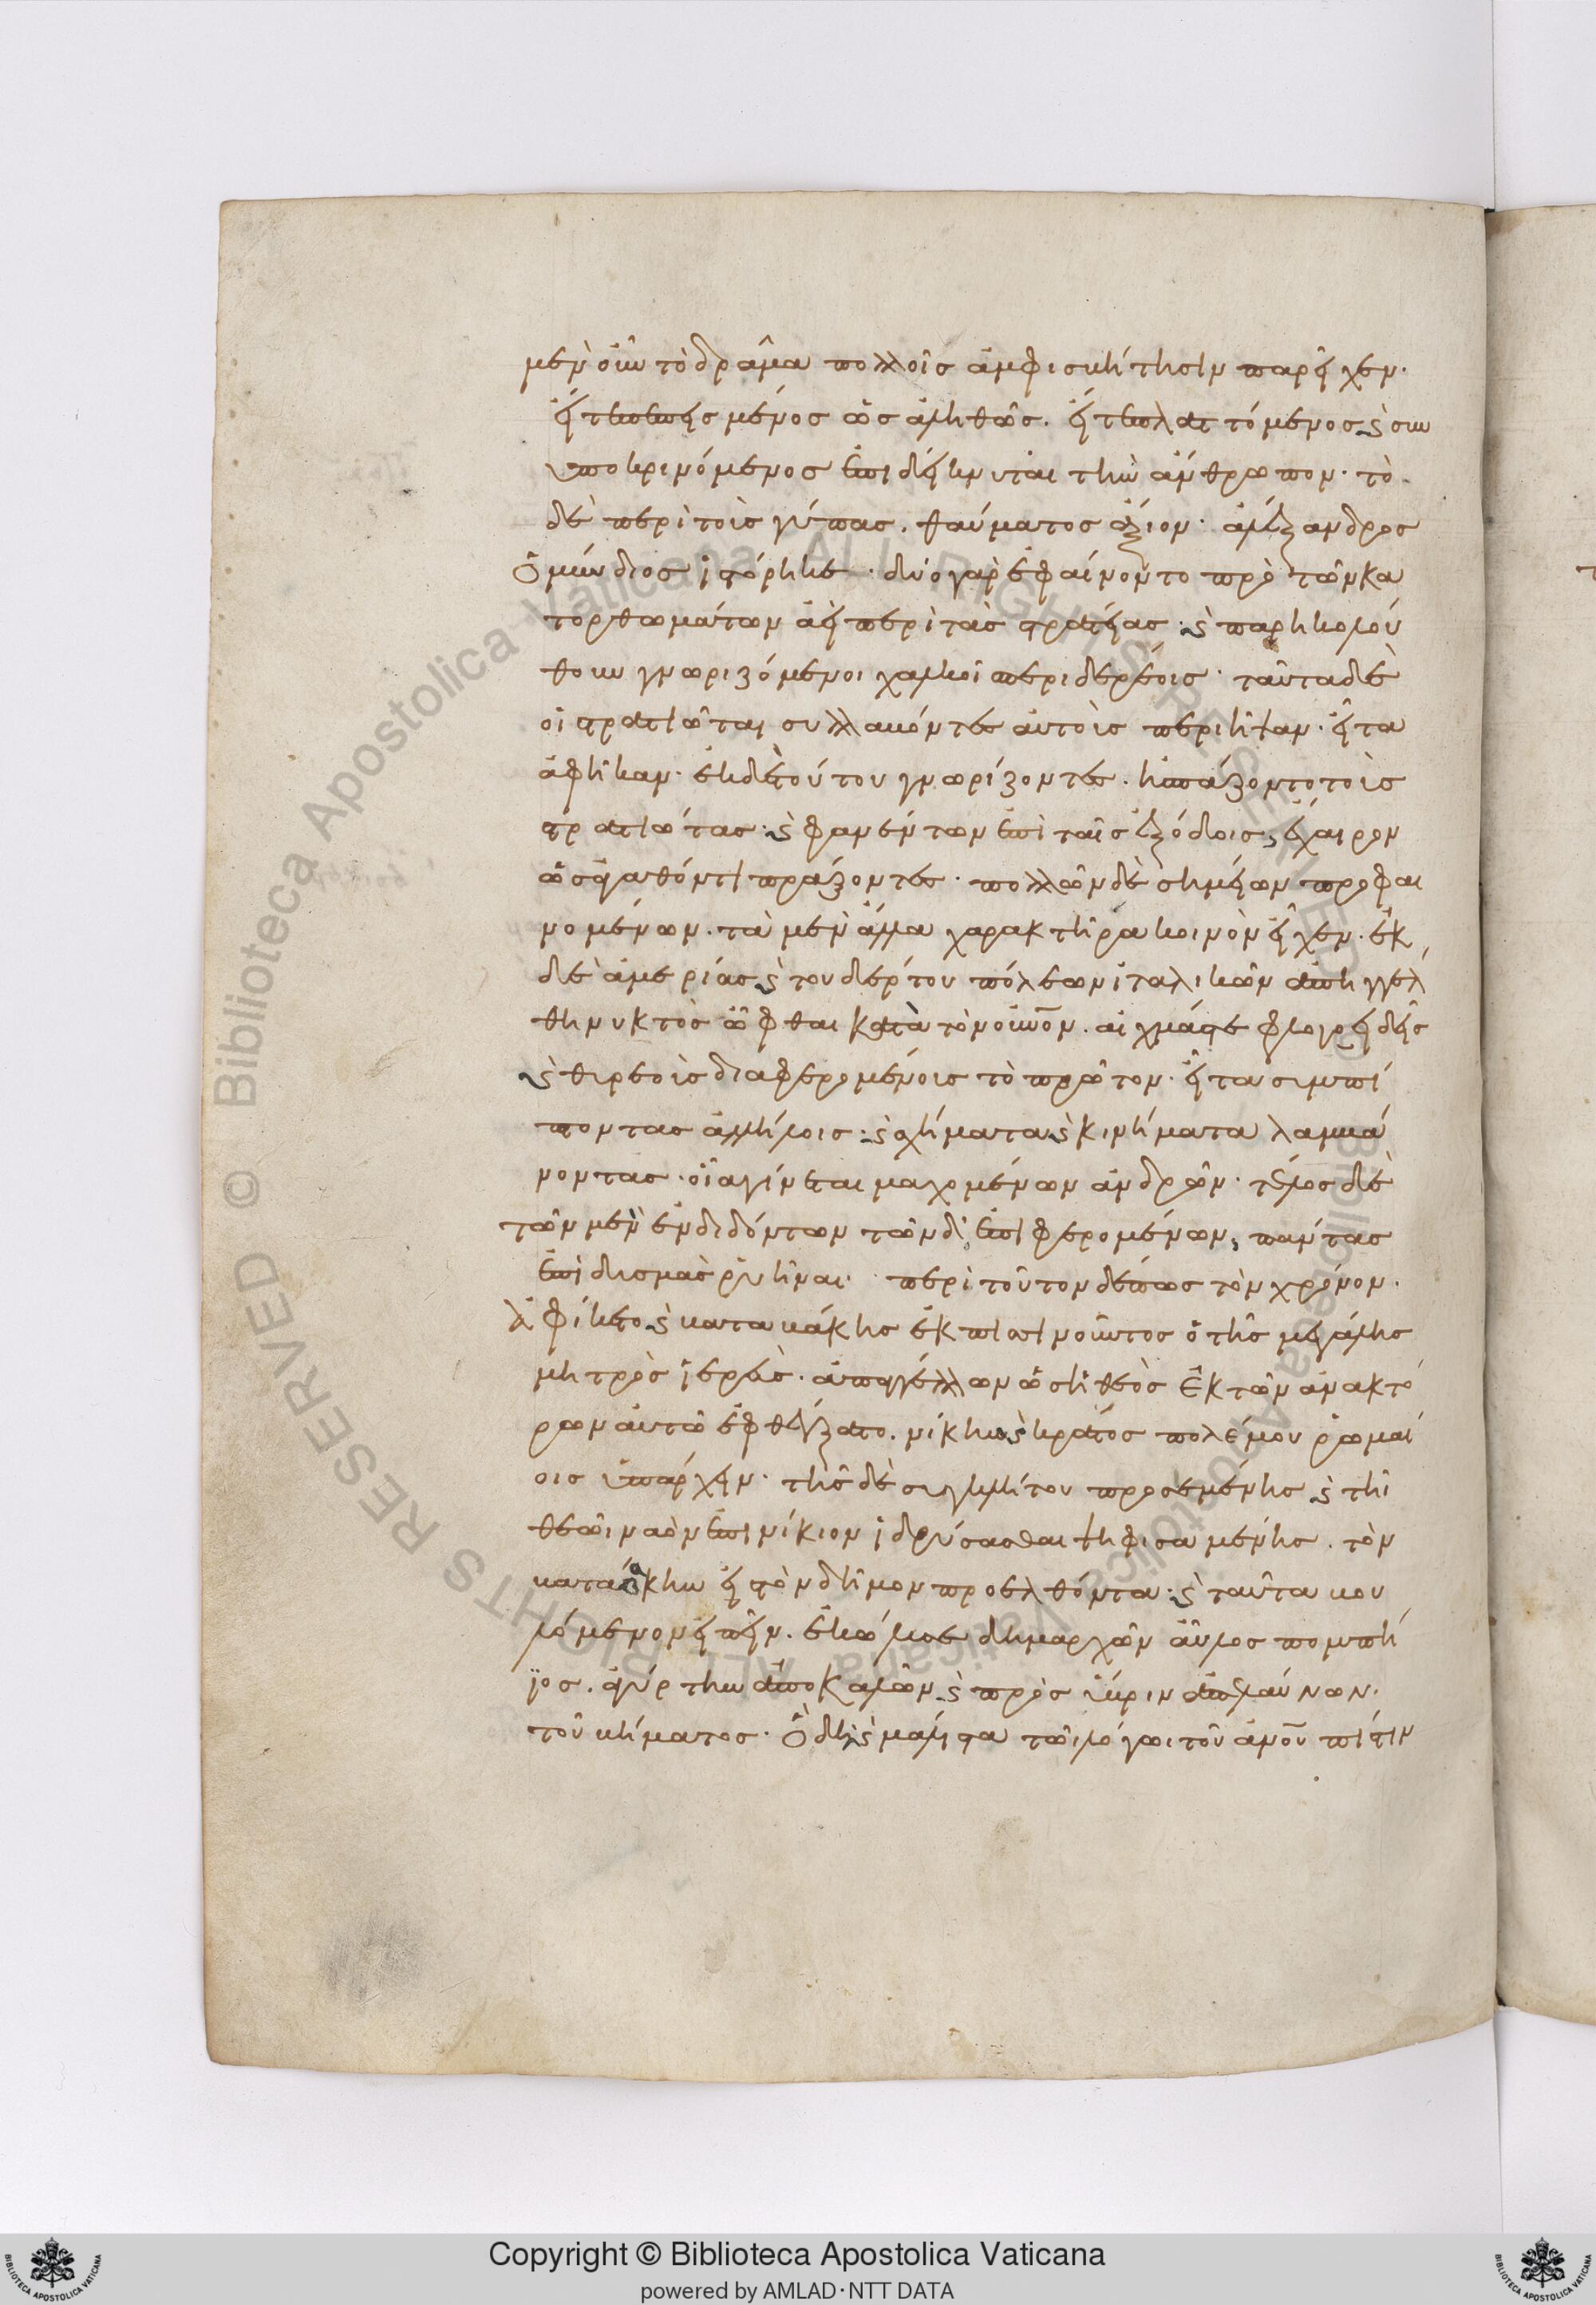 μὲν οὖν τὸ δρᾶμα πολλοῖς ἀμφισβήτησιν παρεῖχεν·
εἴτε πεπεισμένος ὡς ἀληθῶς. εἴτε πλαττόμενος καὶ συν
υποκρινόμενος ἐπιδείκνυται τὴν ἄνθρωπον· τὸ
δὲ περὶ τοὺς γύπας. θαύματος ἄξιον· ἀλέξανδρος
ὁ μύνδιος ἱστόρηκε· δύο γὰρ ἐφαίνοντο πρὸ τῶν κα
τορθωμάτων ἀεὶ περὶ τὰς στρατείας· καὶ παρηκολού
θουν γνωριζόμενοι χαλκοῖ περιδερέοις· ταῦτα δὲ
οἱ στρατιῶται συλλαβόντες αὐτοὺς περιῆψαν· εἶτα
ἀφῆκαν· ἐκ δὲ τούτου γνωρίζοντες. ἠσπάζοντο τοὺς
στρατιώτας· καὶ φανέντων ἐπὶ ταῖς ἐξόδοις, ἔχαιρον
ὡς ἀγαθόν τι πράξοντες· πολλῶν δὲ σημείων προφαι
νομένων. τὰ μὲν ἄλλα χαρακτῆρα κοινὸν εἶχεν. ἐκ
δὲ ἀμερίας καὶ τουδέρτου πόλεων ἰταλικῶν ἀπηγγέλ
θη νυκτὸς ὦφθαι κατὰ τὸν οὐνον. αἰχμάς τε φλογοειδεῖς
καὶ θυρεοὺς διαφερομένοις τὸ πρῶτον· εἶτα συμπί
πτοντας ἀλλήλοις· καὶ σχήματα καὶ κινήματα λαμβά
νοντας· οἷα γίνεται μαχομένων ἀνδρῶν· τέλος δὲ
τῶν μὲν ἐνδιδόντων τῶν δ' ἐπιφερομένων, πάντας
ἐπὶ δυσμὰς ρυῆναι· περὶ τοῦτον δέ πως τὸν χρόνον·
ἀφίκετο καὶ βατακάκης ἐκ πισινοῦντος ὁ τῆς μεγάλης
μητρὸς ἱερεὺς· ἀπαγγέλλων ὡς ἡ θεὸς ἐκ τῶν ἀνακτό
ρων αὐτῶ ἐφθέγξατο. νίκην καὶ κράτος πολέμου ῥωμαί
οις ὑπάρχειν· τῆς δὲ συγκλήτου προσεμένης καὶ τῆ
θεῶι ναὸν ἐπινίκιον ἱδρύσασθαι ψηφισαμένης. τὸν
βατάκην εἰς τὸν δῆμον προελθόντα· καὶ ταῦτα βου
λόμενον εἰπεῖν. ἐκώλυσε δημαρχῶν αὖλος πομπή
ϊος. ἀγύρτην ἀποκαλῶν καὶ πρὸς ὕβριν ἀπελαύνων·
τοῦ βήματος· ὃ δὴ καὶ μάλιστα τῶι λόγωι τοῦ ἀνου πίστιν